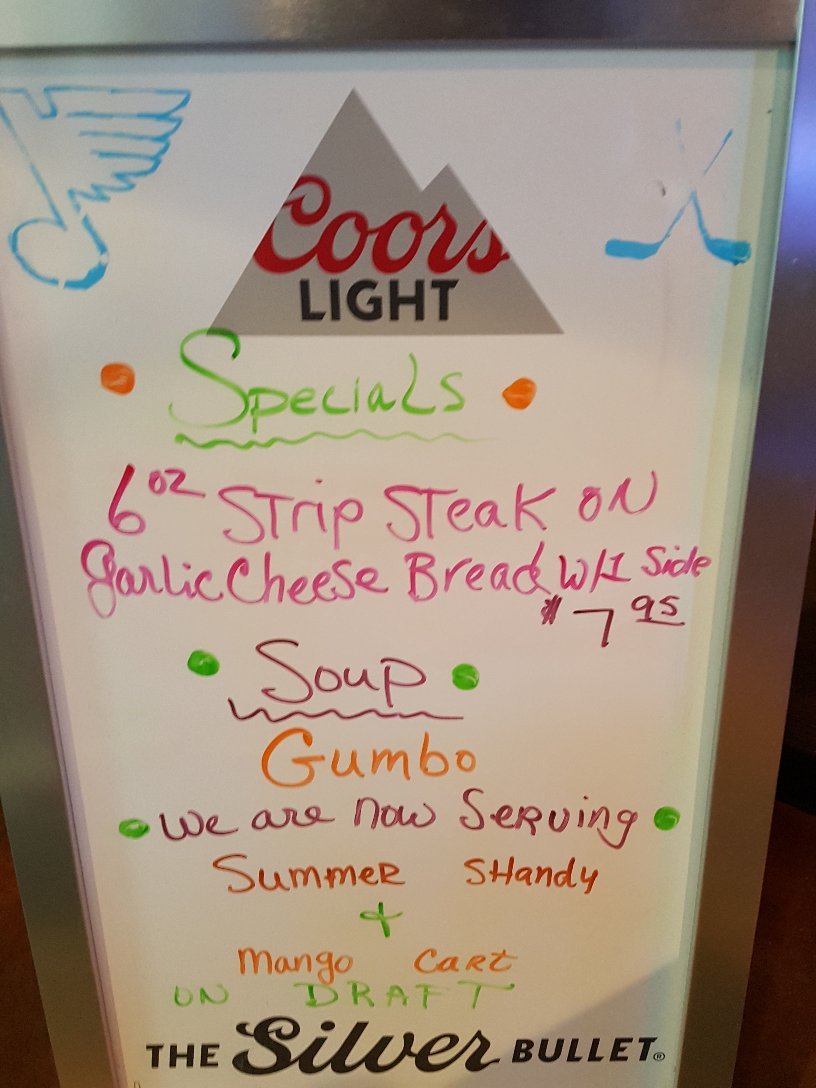 Coors
LIGHT
Specials
6 oz Strip Steak on
Garlic Cheese Bread w/1 Side
$7 95
Soup
Gumbo
We are now Serving
Summer SHandy
+
Mango Cart
ON DRAFT
THE Silver BULLET®